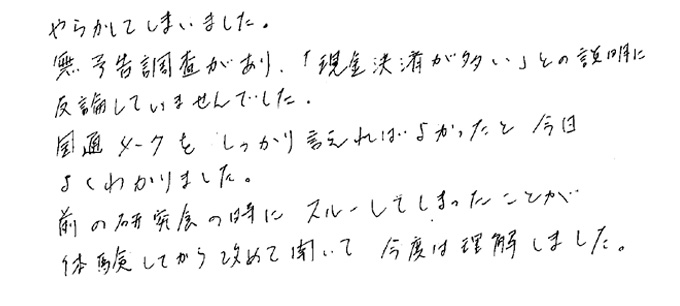 やらかしてしまいました。
無予告調査があり、「現金決済が多い」との説明に
反論していませんでした。
国通メークをしっかり言えればよかったと今日
よくわかりました。
前の研究会の時にスルーしてしまったことが
体験してから改めて聞いて今度は理解しました。